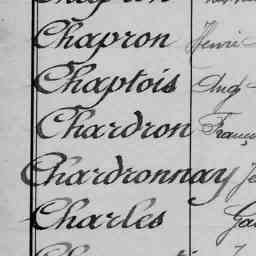 Chapron Henri
Chaptois Aug
Chardron Franç
Chardronnay
Charles